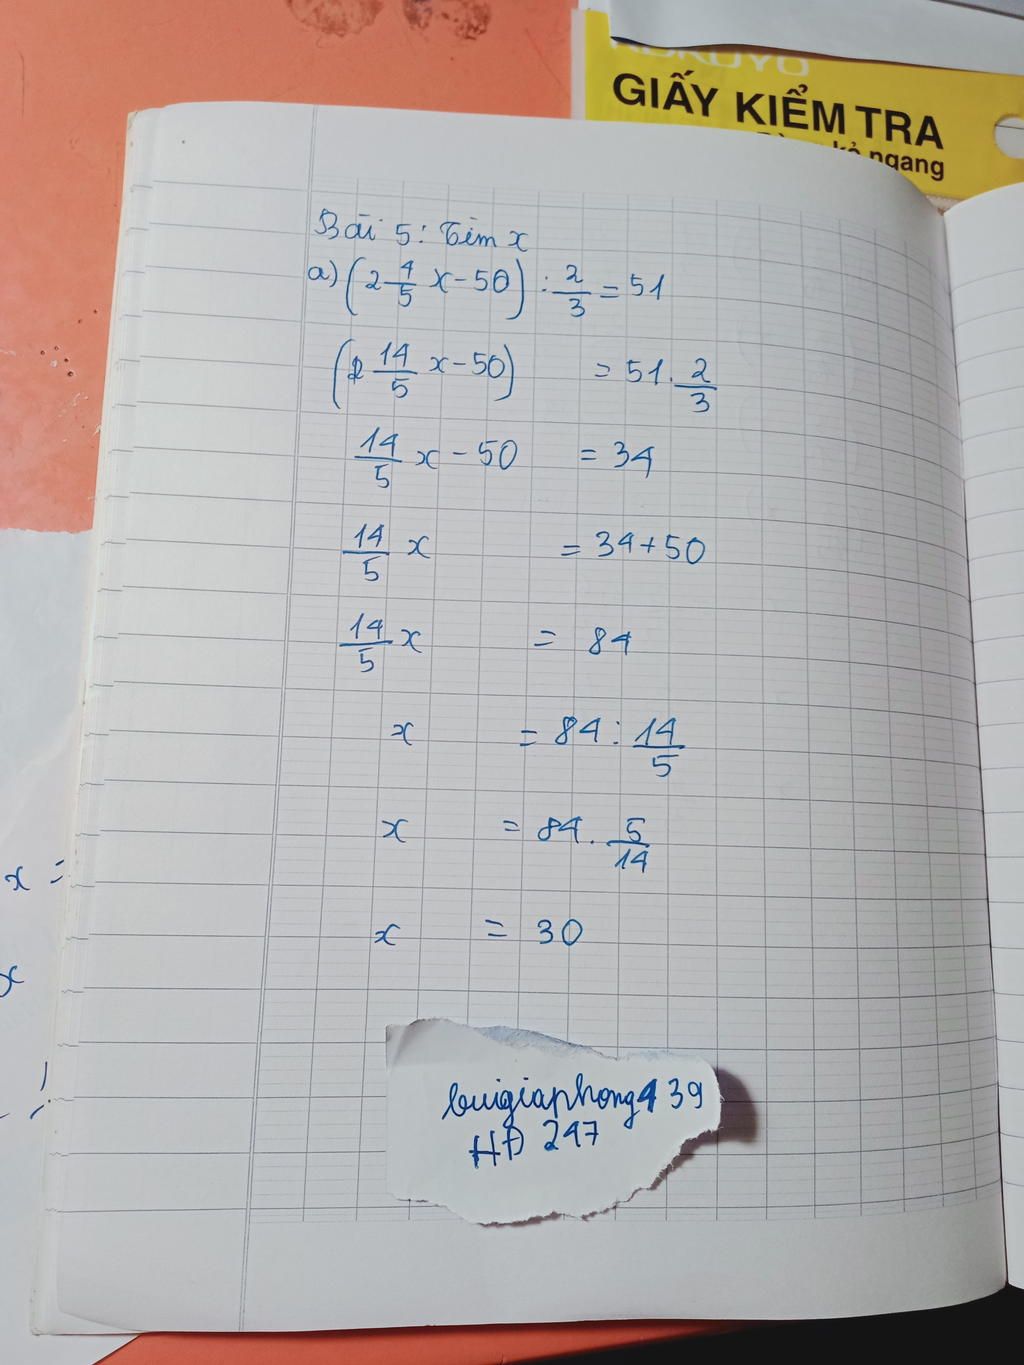 KOKUYO
GIẤY KIỂM TRA
kẻ ngang
Bài 5: Tìm x
a) (2 4/5 x - 50) : 2/3 = 51
( 14/5 x - 50) = 51 . 2/3
14/5 x - 50 = 34
14/5 x = 34 + 50
14/5 x = 84
x = 84 : 14/5
x = 84 . 5/14
x = 30
x =
x
buigiaphong439
HĐ 247